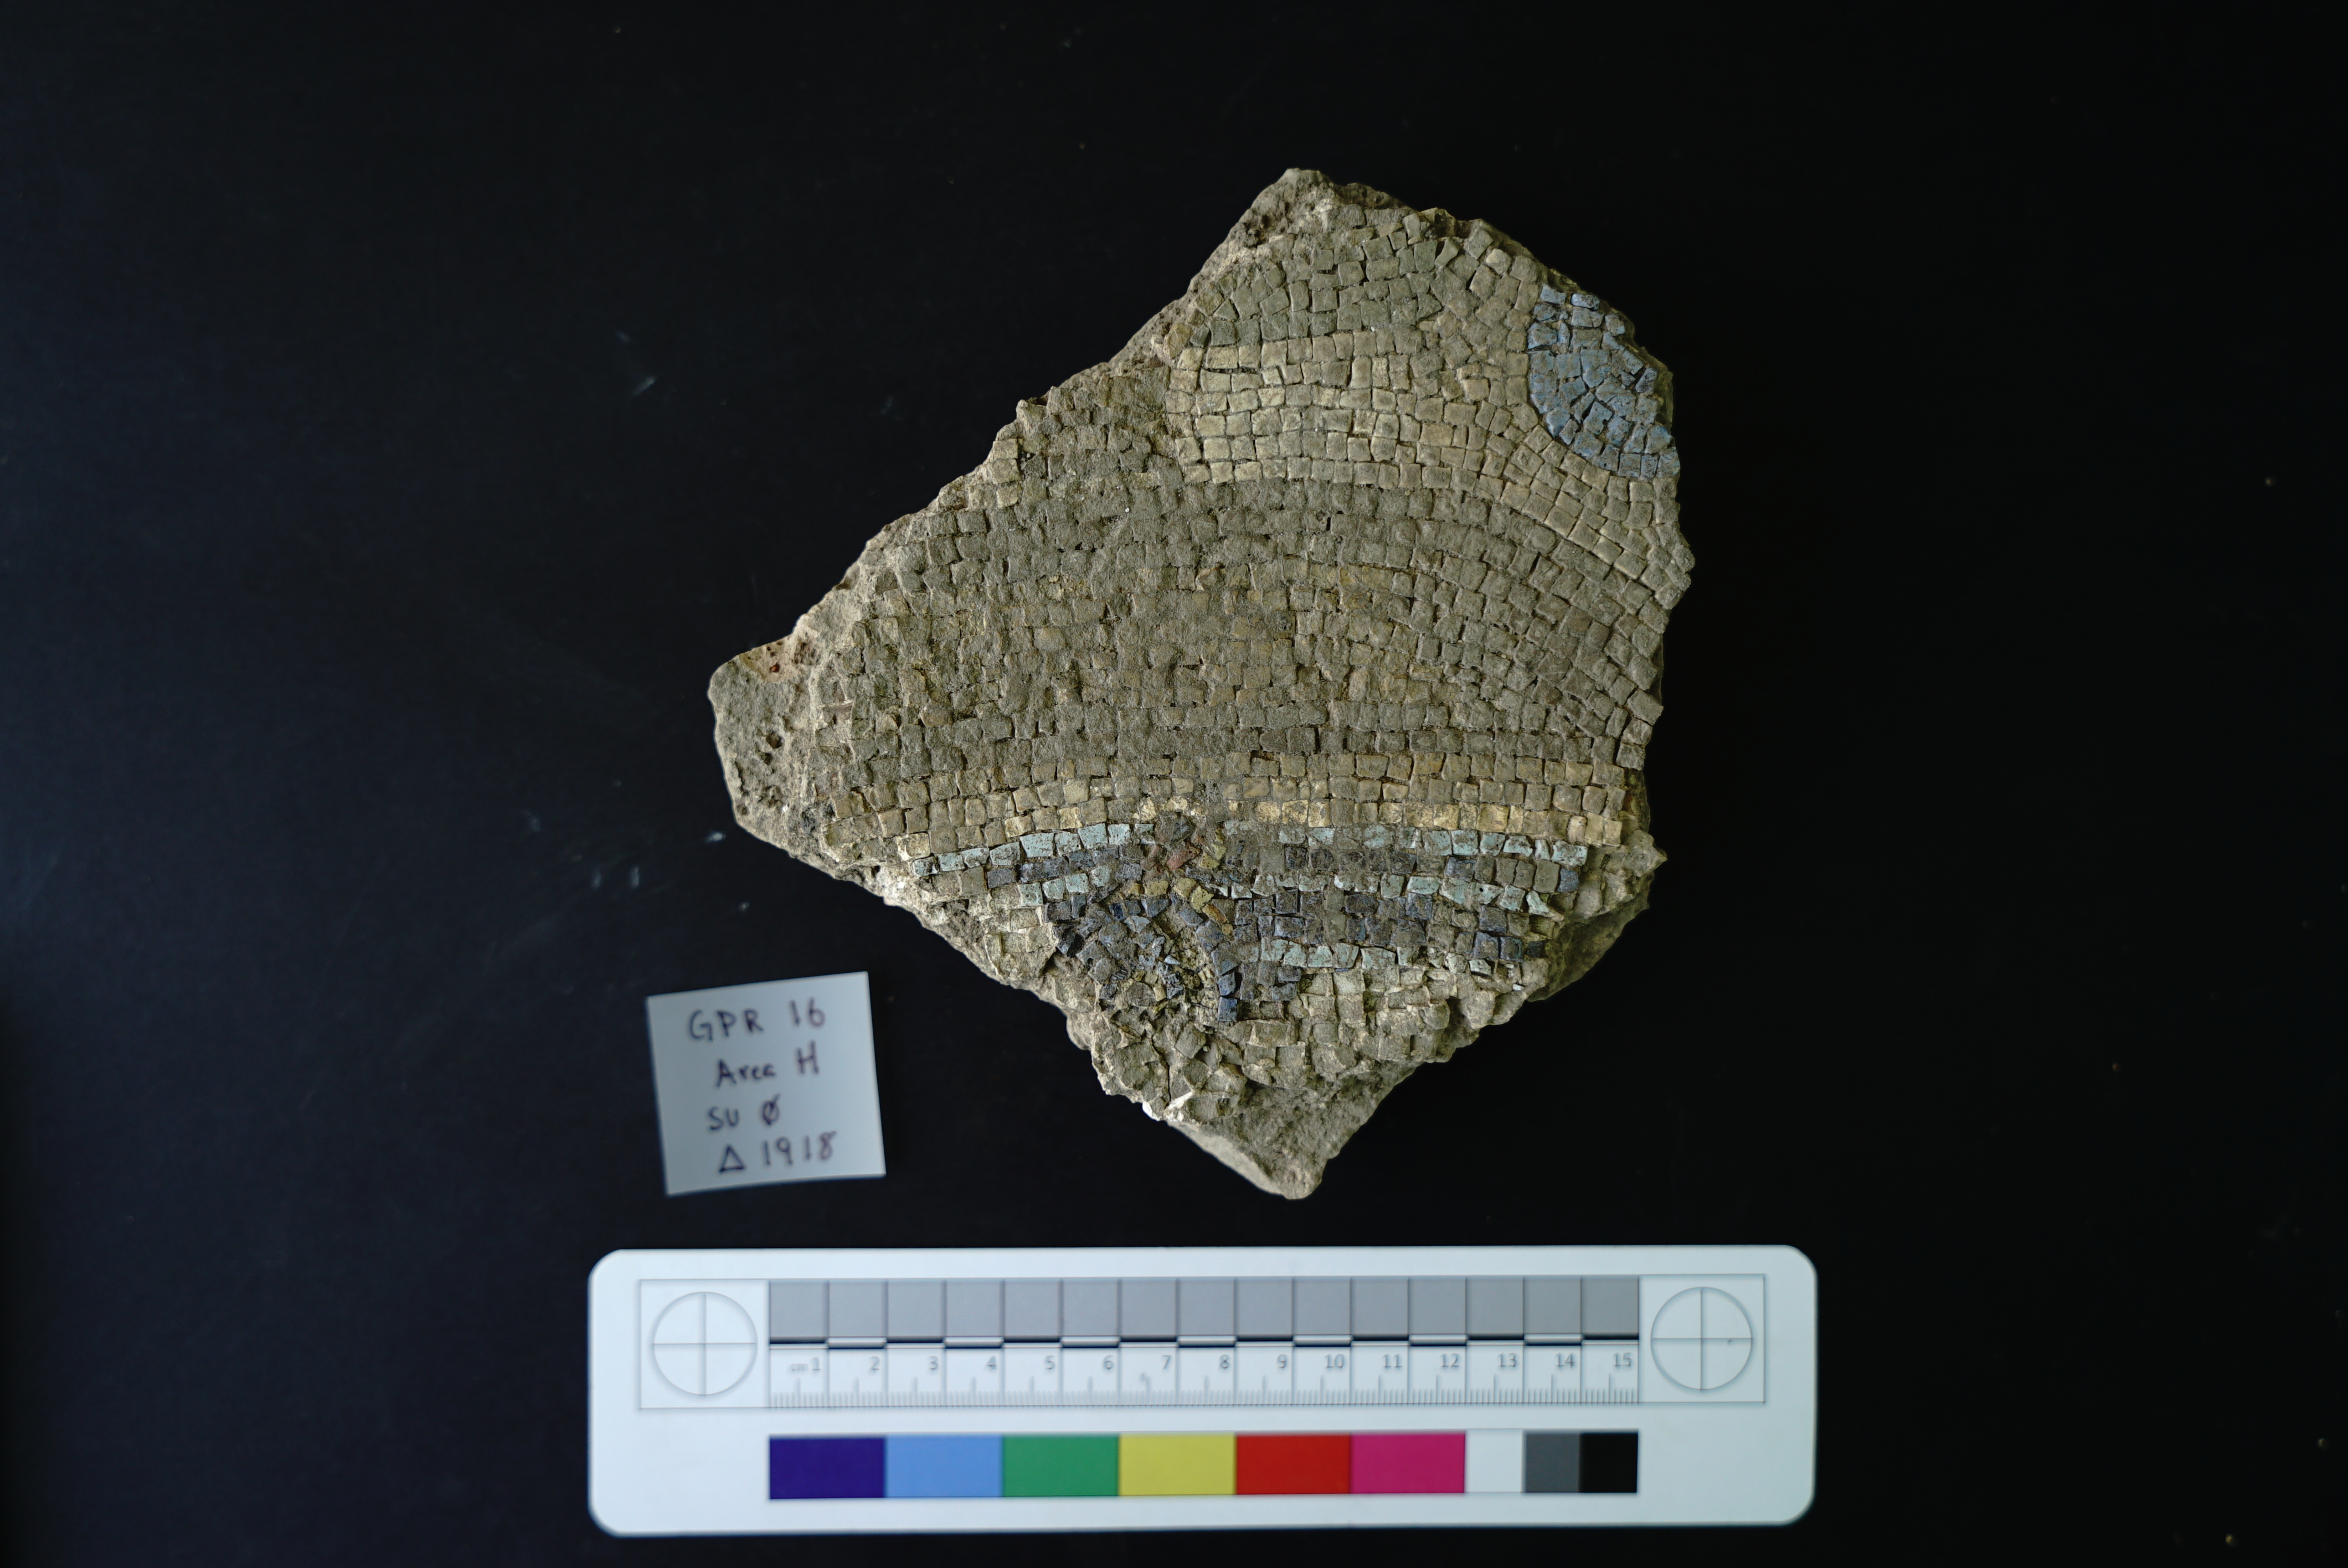 GPR 16
Area H
SU Ø
Δ 1918
cm 1 2 3 4 5 6 7 8 9 10 11 12 13 14 15